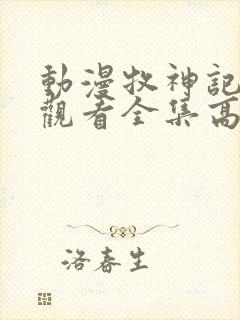 動漫牧神記
觀看全集高
洛春生